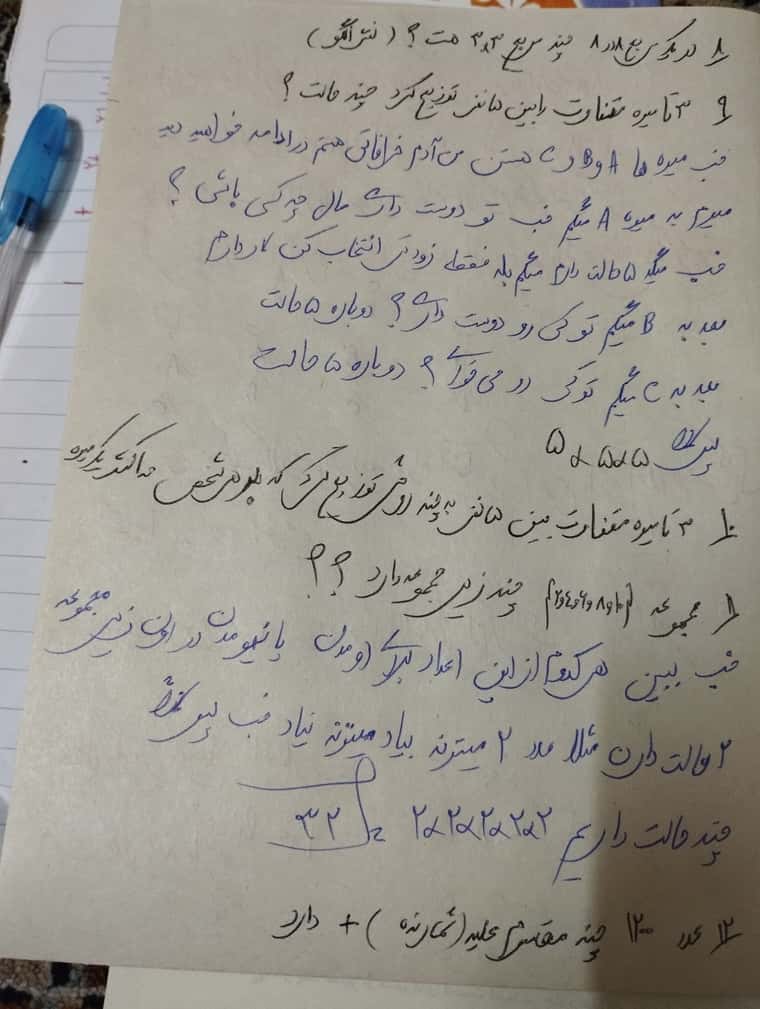 ۸ در یک مربع ۸در۸ چند مربع ۳در۳ هست ؟ (نقش الگو)
۹ ۳ تا میوه متفاوت را بین ۵ نفر توزیع کرد چند حالت ؟
خب میوه ها A و B و C هستن من آدم خرافاتی هستم در ادامه خواهید دید
میرم به میوه A میگم خب تو دوست داری مال چه کسی باشی ؟
خب میگه ۵ حالت دارم میگم بله فقط زودتر انتخاب کن کار دارم
بعد به B میگم تو کی رو دوست داری ؟ دوباره ۵ حالت
بعد به C میگم تو کی رو می خوای ؟ دوباره ۵ حالت
پس کلاً ۵×۵×۵
۱۰ ۳ تا میوه متفاوت بین ۵ نفر به چند روش توزیع کرد که هر شخص حداکثر یک میوه
۱۱ مجموعه {۲و۴و۶و۸و۱۰} چند زیر مجموعه دارد ؟؟
خب ببین هر کدوم از این اعداد برای اومدن یا نیومدن در اون زیر مجموعه
۲ حالت دارن مثلا عدد ۲ میتونه بیاد میتونه نیاد خب پس کلاً
چند حالت داریم ۲×۲×۲×۲×۲ = ۳۲
۱۲ عدد ۱۲۰۰ چند مقسوم علیه (شمارنده) + دارد